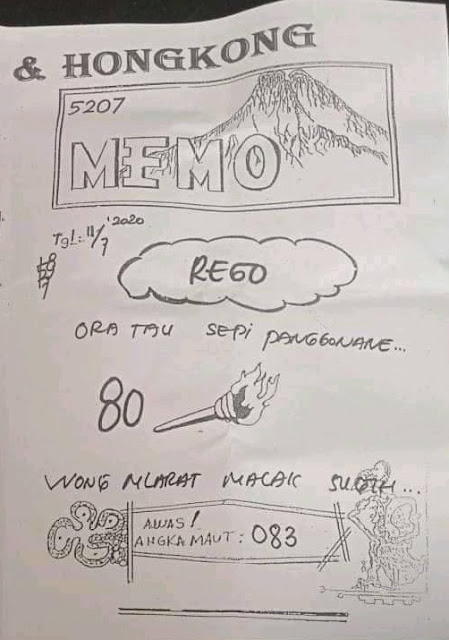 & HONGKONG
5207
MEMO
Tgl: 11/7 '2020
REGO
ORA TAU SEPI PANGGONANE...
80
WONG MLARAT MACAK SUGIH...
AWAS!
ANGKA MAUT: 083